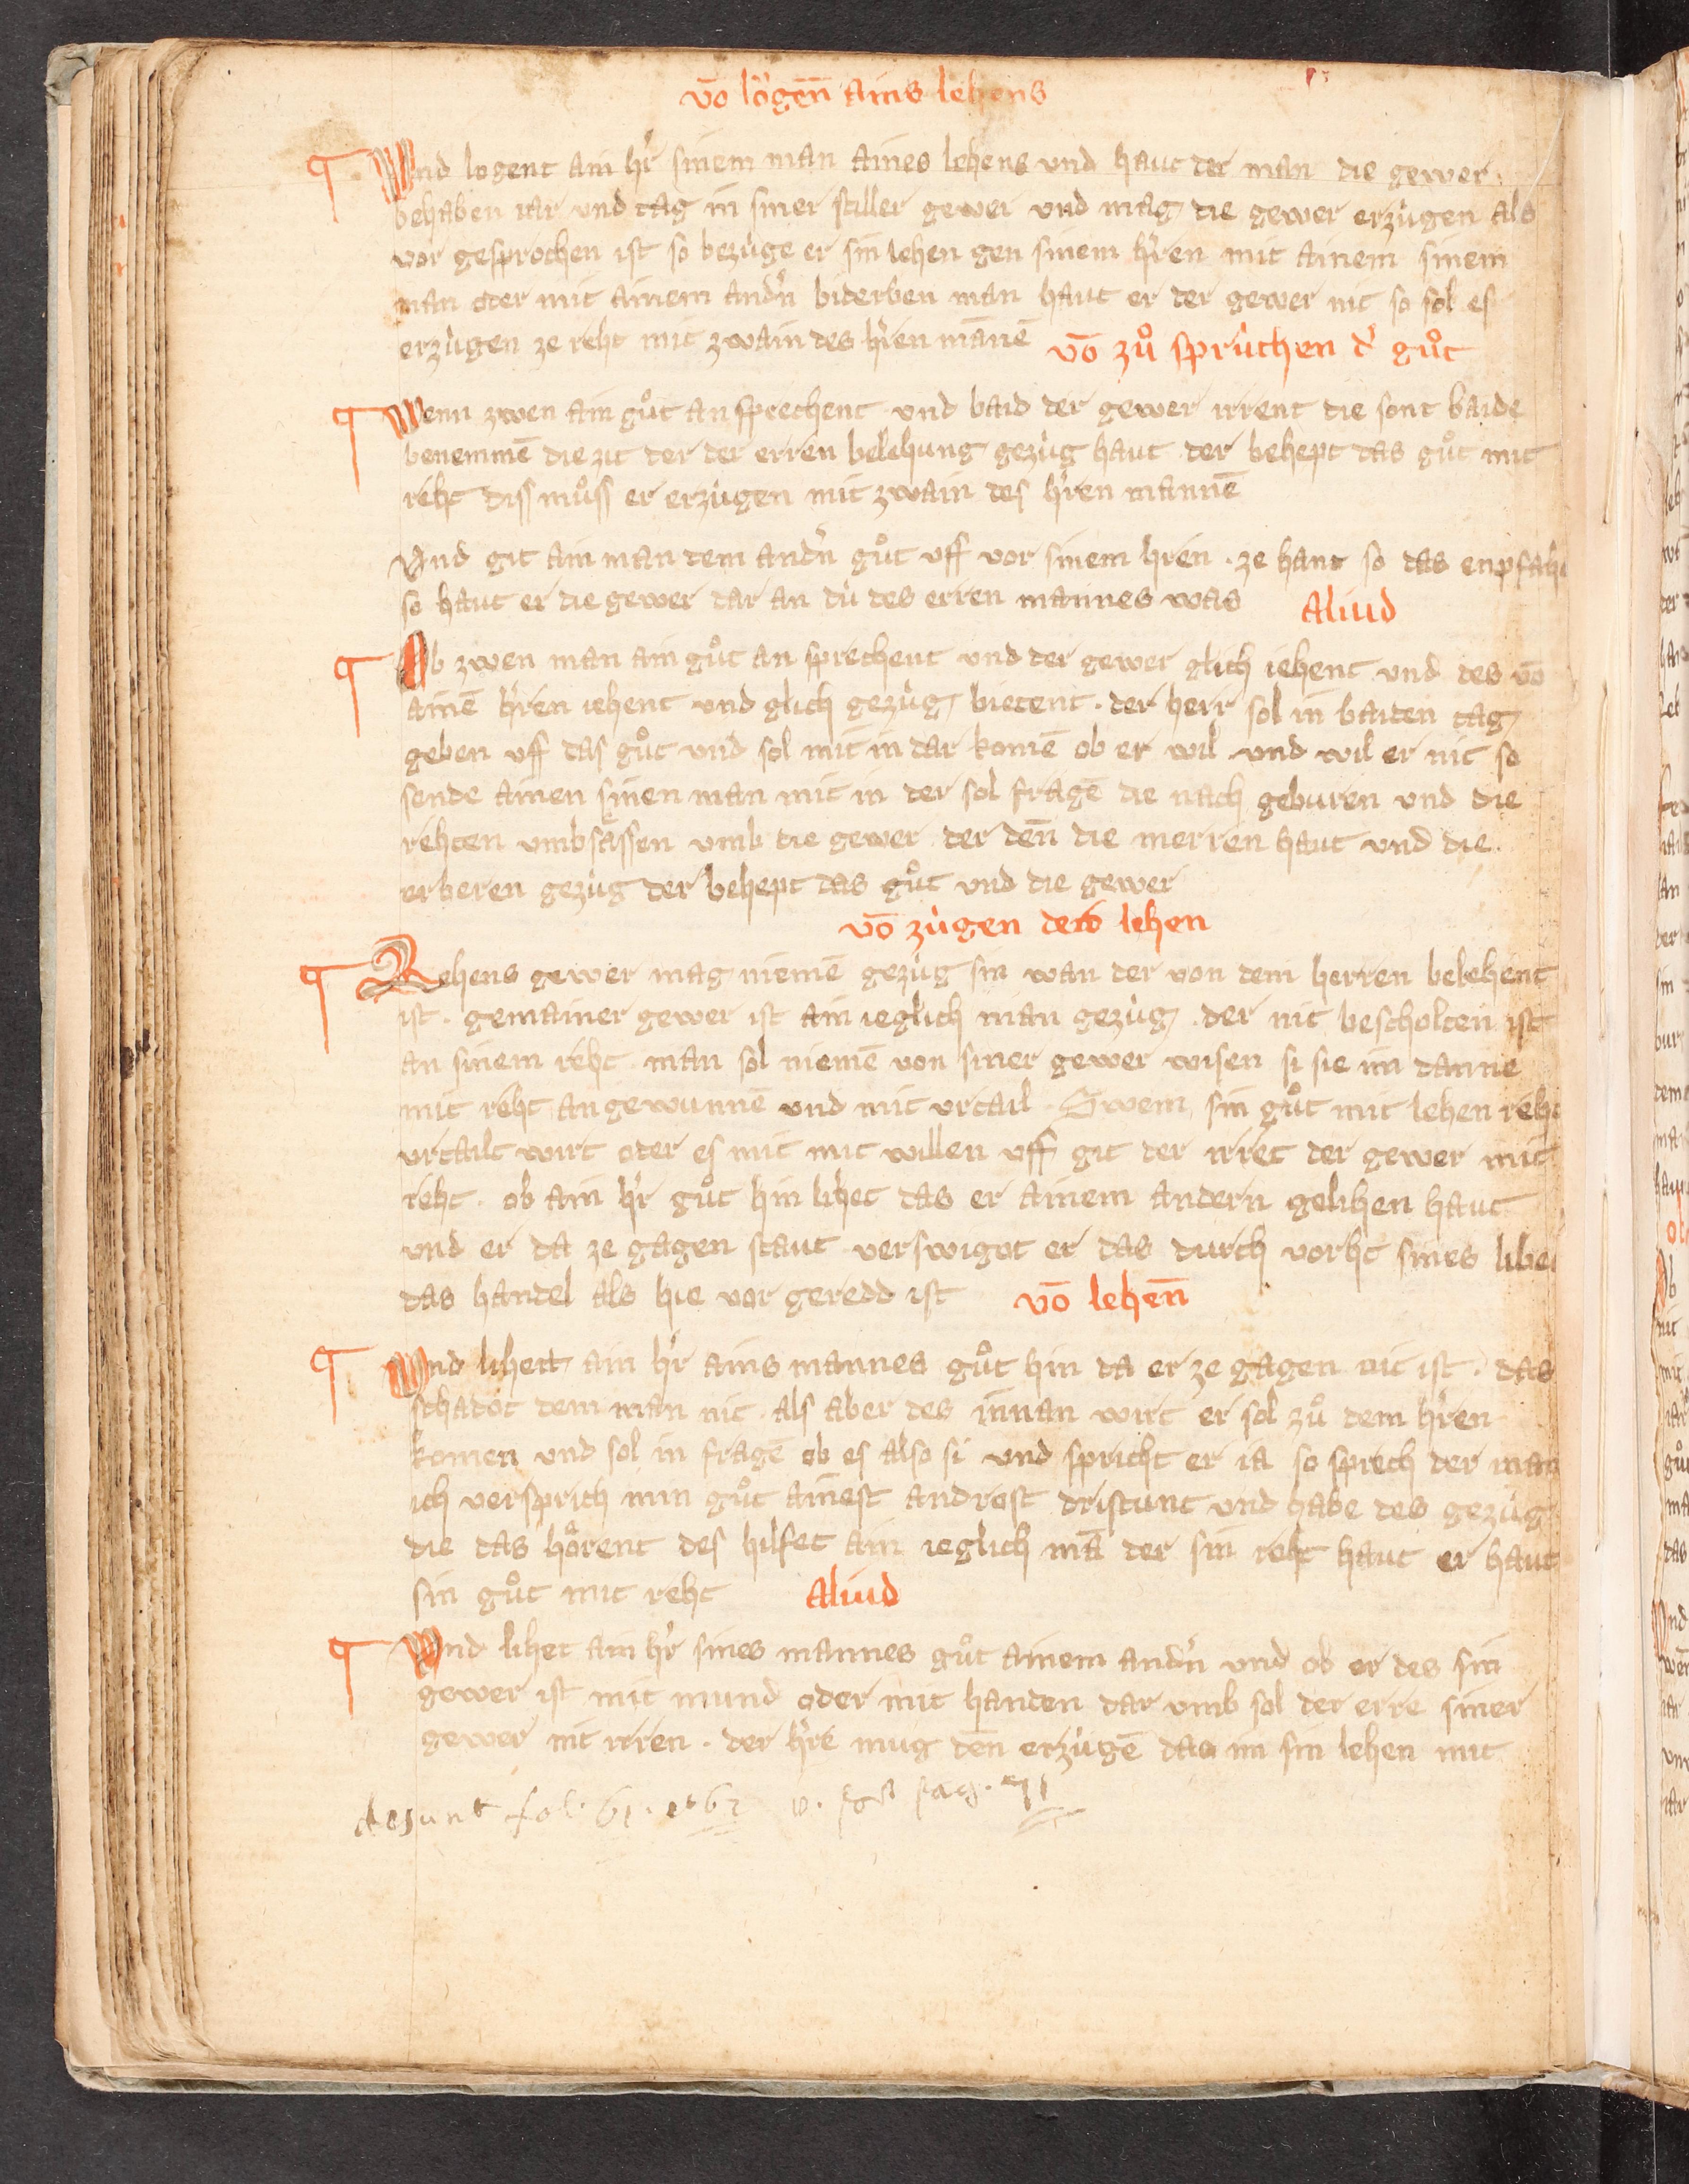 vō lögenn̄ ains lehens
Und logent ain hr̄ sinem man aines lehens und haut der man die gewer
behaben iar und tag in siner stiller gewer und mag die gewer erzúgen als
vor gesprochen ist so bezúge er sin lehen gen sinem hr̄en mit ainem sinem
man oder mit ainem andr̄n biderben man haut er der gewer nit so sol es
erzúgen ze reht mit zwain des hr̄en mānē vō zů sprúchen dˀ gůt
Wenn zwen ain gůt an sprechent und baid der gewer irrent die sont baide
benemmē die zit der der erren belehung gezúg haut der behept das gůt mit
reht diss můss er erzúgen mit zwain des hr̄en mannē
Und git ain man dem andr̄n gůt uff vor sinem hren · ze hant so das enpfahe
so haut er die gewer dar an dú des erren mannes was Aliud
Ob zwen man ain gůt an sprechent und der gewer glich iehent und des vō
ainē hr̄en iehent und glich gezúg bietent · der herr sol in baiden tag
geben uff das gůt und sol mit in dar komē ob er wil und wil er nit so
sende ainen sinen man mit in der sol fragē die nach geburen und die
rehten umbsässen umb die gewer der den̄ die merren haut und die
erberen gezúg der behept das gůt und die gewer
vō zúgen der lehen
Lehens gewer mag niemē gezúg sin wan der von dem herren belehent
ist · gemainer gewer ist ain ieglich man gezúg · der nit bescholten ist
an sinem reht · man sol niemē von siner gewer wisen si sie im danne
mit reht an gewunnē und mit urtail · Swem sin gůt mit lehen reht
urtailt wirt oder es mit mit willen uff git der irret der gewer mit
reht · ob ain hr̄ gůt hin lihet das er ainem andern gelihen haut
und er da ze gagen staut verswigot er das durch vorht sines libes
das handel als hie vor geredd ist vō lehen̄
Und lihett ain hr̄ ains mannes gůt hin da er ze gagen nit ist · das
schadot dem man nit · als aber des innan wirt er sol zů dem hr̄en
komen und sol in fragē ob es also si und spricht er ia so sprech der man
ich versprich min gůt ainest andrest dristunt und habe des gezúg
die das hörent des hilfet ain ieglich mā der sin reht haut er haut
sin gůt mit reht Aliud
Und lihet ain hr̄ sines mannes gůt ainem andr̄n und ob er des sin
gewer ist mit mund oder mit handen dar umb sol der erre siner
gewer nit irren · der hr̄re mug den̄ erzúgē das im sin lehen mit
desunt fol. 61. et 62 pag. 71